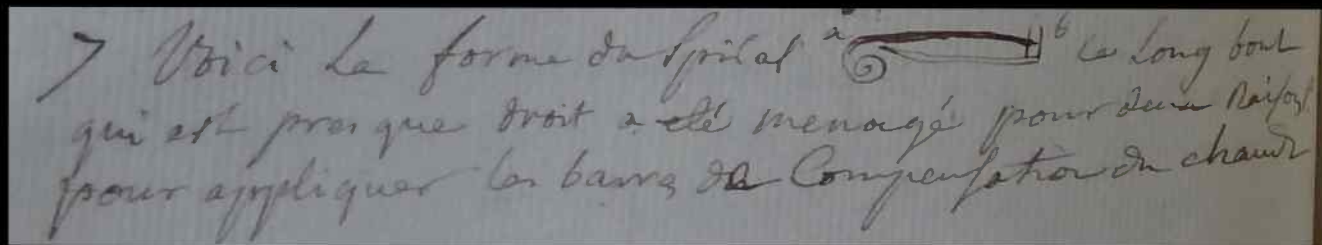 7 Voici la forme du spiral a b ce long bout
qui est presque droit a eté menagé pour deux raisons
pour appliquer les barres de Compensation du chaud